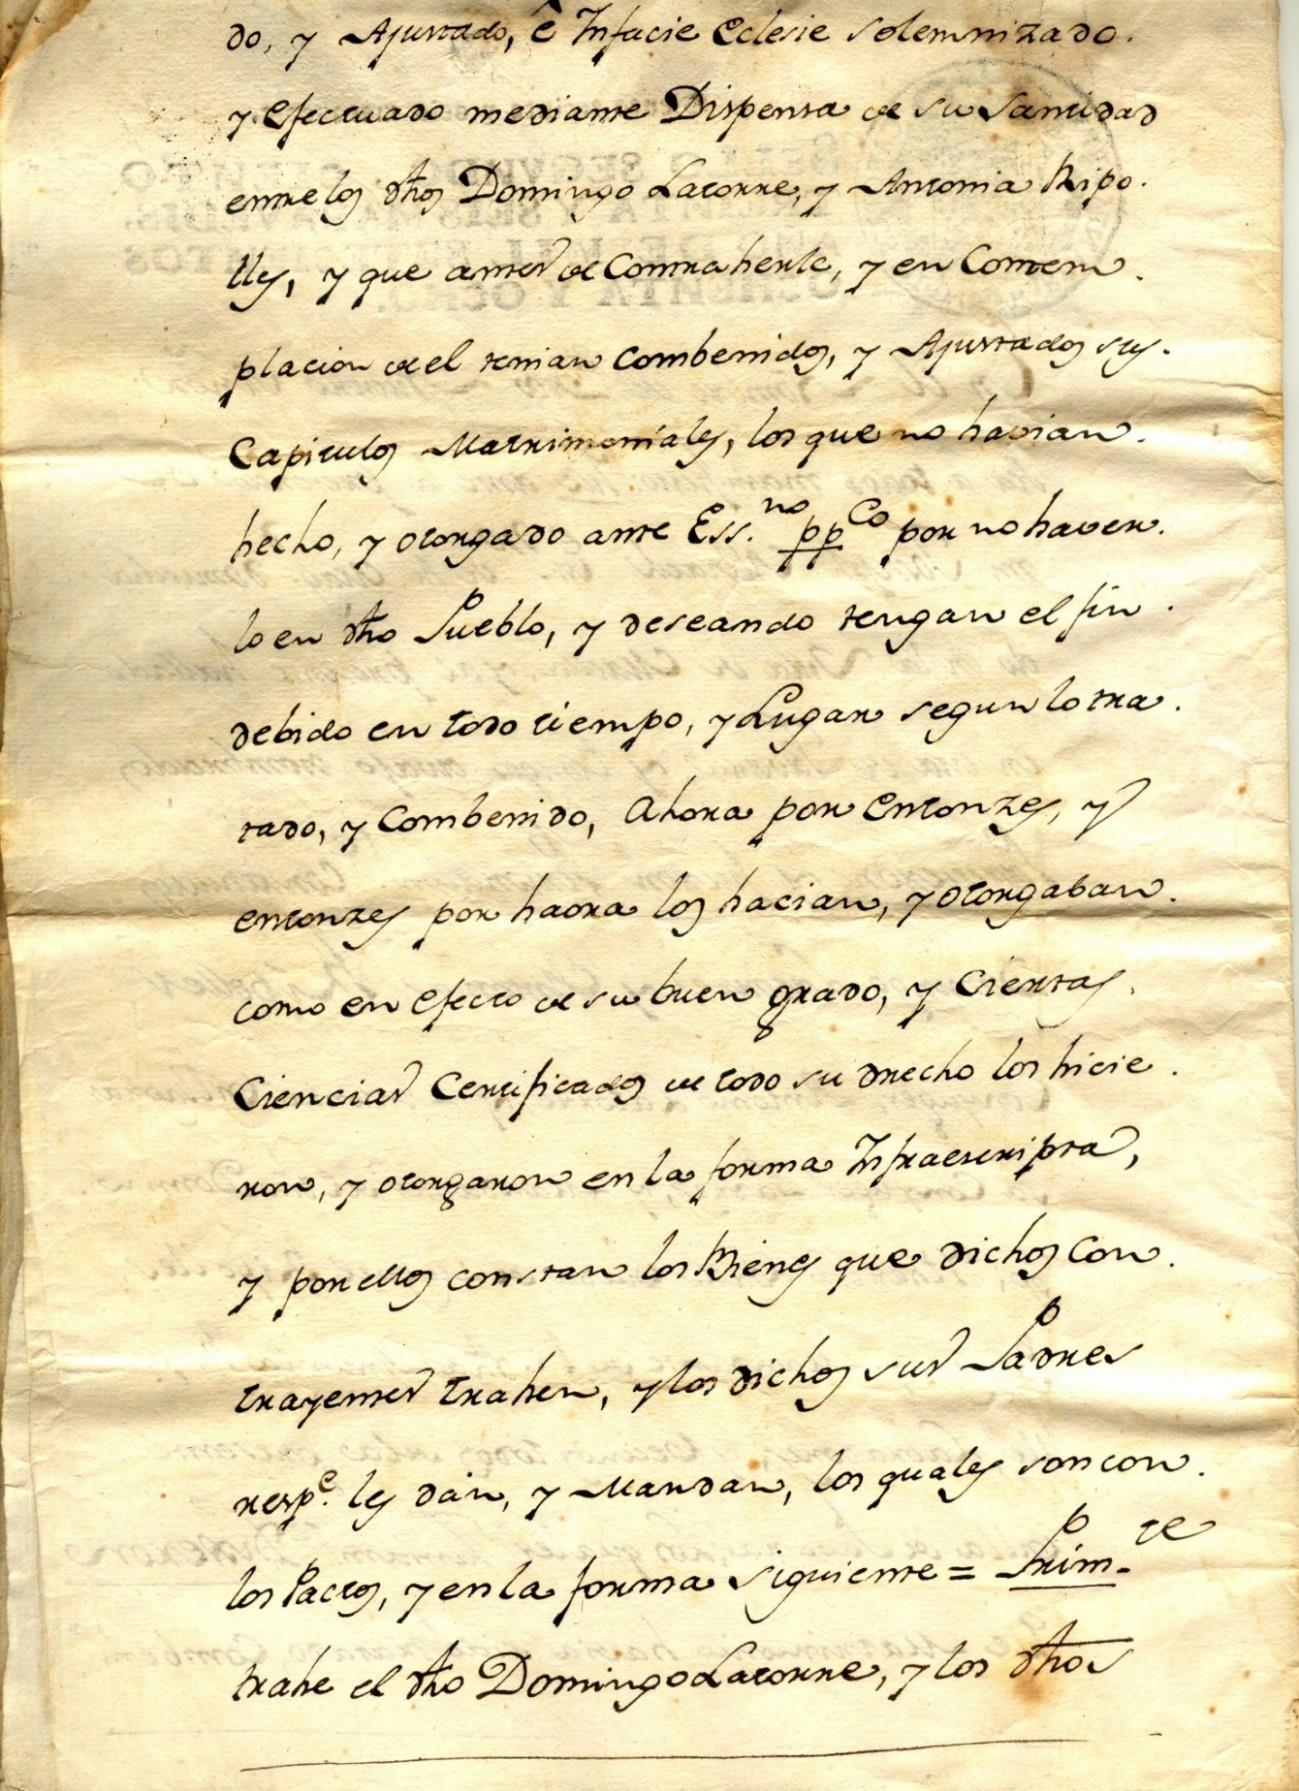 do, y Ajustado, ê Infacie eclesie solemnizado.
y efectuado mediante Dispensa de su Santidad
entre los dhos Domingo Latorre, y Antonia Ripo.
lles, y que antes de Contraherle, y en Contem.
placion de el tenian combenidos, y Ajustados sus.
Capitulos Matrimoniales, los que no havian.
hecho, y otorgado ante Ess.no ppco por no haver.
lo en dho Pueblo, y deseando tengan el fin.
debido en todo tiempo, y Lugar segun lo tra.
tado, y Combenido, Ahora por Entonzes, y
entonzes por haora los hacian, y otorgaban.
como en efecto de su buen grado, y Ciertas.
Ciencias Certificados de todo su drecho los hicie.
ron, y otorgaron en la forma Infraescripta,
y por ellos constan los Bienes que dichos Con.
trayentes trahen, y los dichos sus Padres
respe. les dán, y Mandan, los quales son con.
los Pactos, y en la forma siguiente = Prim.te
trahe el dho Domingo Latorre, y los dhos